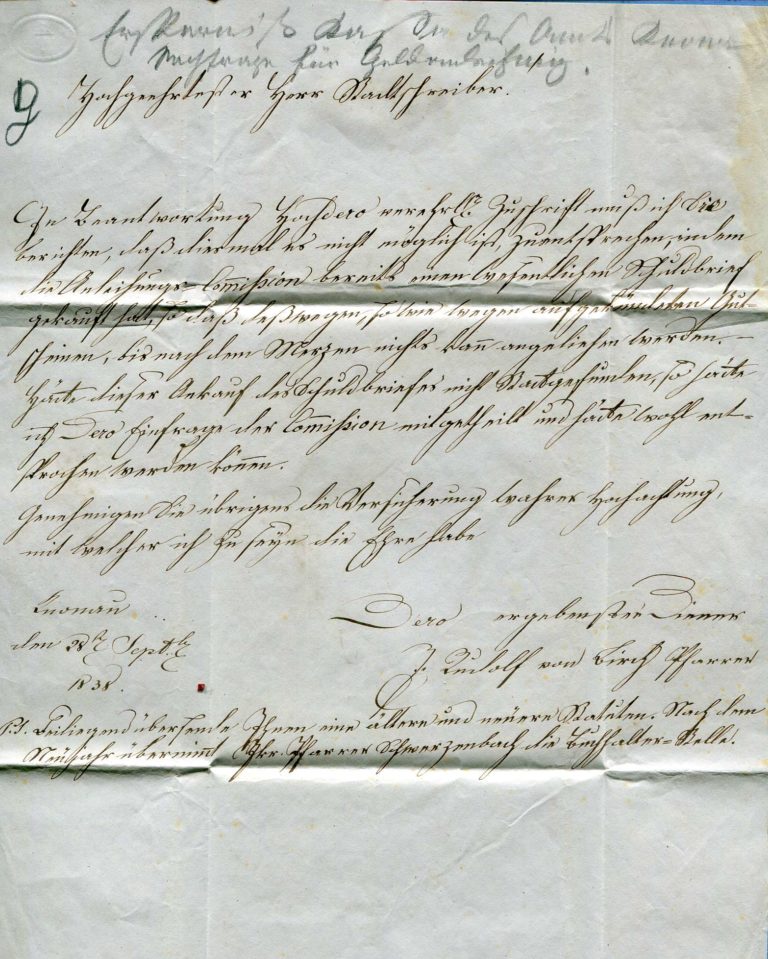 Ersparniß Kasse des Amts Knonau
Nachfrage für Geldaufnahme.
9
Hochgeehrtester Herr Stadtschreiber.
In Beantwortung Hochdero verehrl. Zuschrift muß ich Sie
berichten, daß diesmal es nicht möglich ist, zuentsprechen, indem
die Anleihungs-Comission bereits einen wesentlichen Schuldbrief
gekauft hat, so daß deßwegen, so wie wegen aufgekündeten Gut-
scheinen, bis nach dem Merzen nichts kann angeliehen werden. –
Hätte dieser Ankauf des Schuldbriefes nicht Statgefunden, so hätte
ich Dero Einfrage der Comission mitgetheilt und hätte wohl ent-
sprochen werden können.
Genehmigen Sie übrigens die Versicherung wahrer Hochachtung,
mit welcher ich zu seyn die Ehre habe
Knonau
den 28. Sept.
1838.
Dero ergebenster Diener
J. Rudolf von Birch Pfarrer
P.S. Beiliegend übersende Ihnen eine ältere und neuere Statuten. Nach dem
Neujahr übernimmt Hr. Pfarrer Schwerzenbach die Buchhalter-Stelle.